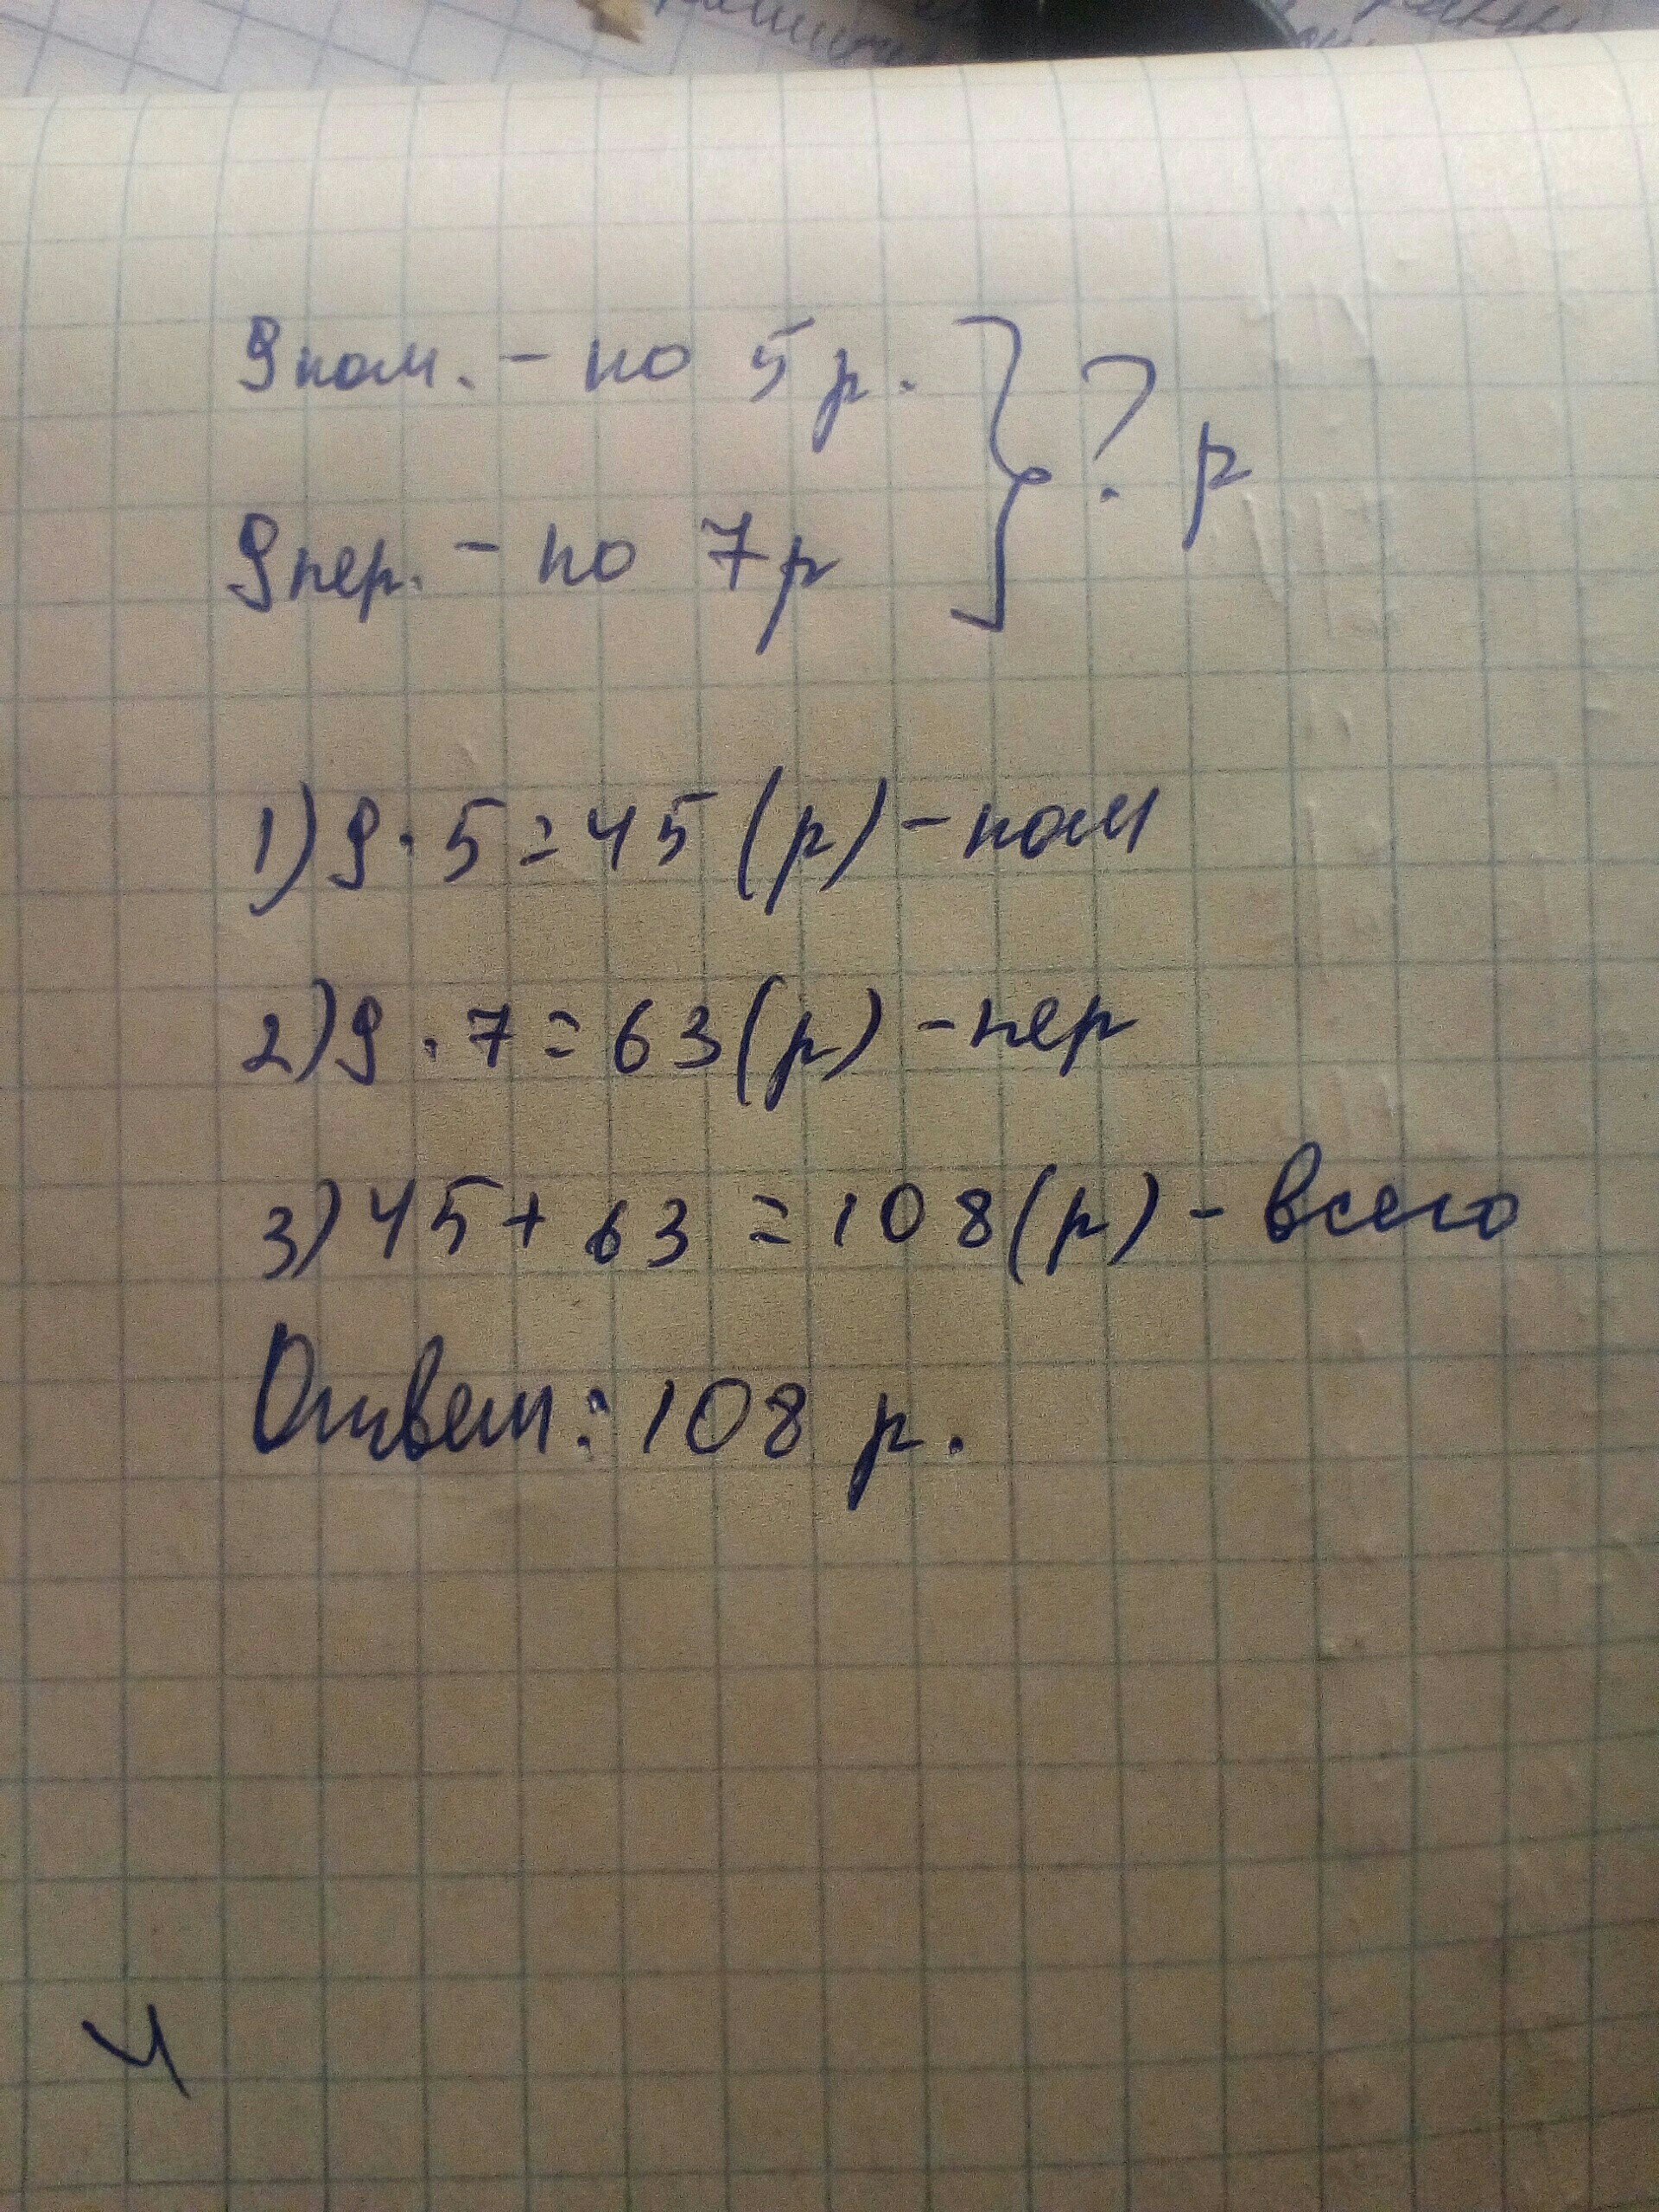 9 пом. - по 5 р.
9 пер. - по 7 р
} ? р
1) 9 · 5 = 45 (р) - пом
2) 9 · 7 = 63 (р) - пер
3) 45 + 63 = 108 (р) - всего
Ответ: 108 р.